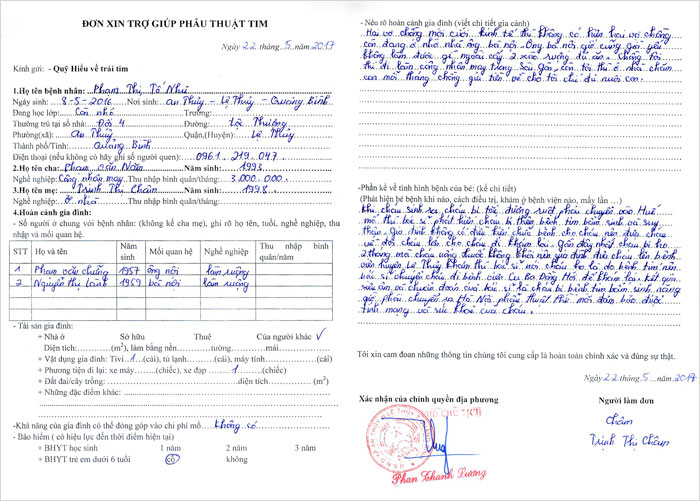 ĐƠN XIN TRỢ GIÚP PHẪU THUẬT TIM
Ngày 22 tháng 5 năm 2017
Kính gửi: - Quỹ Hiểu về trái tim
1.Họ tên bệnh nhân: Phạm Thị Tố Như
Ngày sinh: 8-5-2016 Nơi sinh: An Thủy - Lệ Thủy - Quảng Bình
Đang học lớp: Còn nhỏ Trường:
Thường trú tại số nhà: Đội 4 Đường: Lộc Thượng
Phường(xã): An Thủy Quận,(Huyện): Lệ Thủy
Thành phố/Tỉnh: Quảng Bình
Điện thoại (nếu không có hãy ghi số người quen): 0961.219.047
2.Họ tên cha: Phạm Văn Năm Năm sinh: 1993
Nghề nghiệp: Công nhân may Thu nhập bình quân/tháng: 3.000.000
3.Họ tên mẹ: Trịnh Thị Châm Năm sinh: 1998
Nghề nghiệp: Ở nhà Thu nhập bình quân/tháng:
4.Hoàn cảnh gia đình:
- Số người ở chung với bệnh nhân: (không kể cha mẹ), ghi rõ họ tên, tuổi, nghề nghiệp, thu
nhập và mối quan hệ.
STT Họ và tên Năm sinh Mối quan hệ Nghề nghiệp Thu nhập bình quân/năm
1 Phạm văn chưởng 1957 ông nội làm ruộng
2 Nguyễn thị lành 1959 bà nội làm ruộng
- Tài sản gia đình:
+ Nhà ở Sở hữu Thuê Của người khác √
Diện tích:............(m2), làm bằng nền............tường............mái............
+ Vật dụng gia đình: Tivi 1 (cái), tủ lạnh (cái), máy tính (cái)
+ Phương tiện đi lại: xe máy (chiếc), xe đạp 1 (chiếc)
+ Đất đai/cây trồng: diện tích (m2)
+ Những đặc điểm khác:
-Khả năng của gia đình có thể đóng góp vào chi phí mổ: không có
- Bảo hiểm ( có hiệu lực đến thời điểm hiện tại)
+ BHYT học sinh 1 năm 2 năm 3 năm
+ BHYT trẻ em dưới 6 tuổi có không
- Nêu rõ hoàn cảnh gia đình (viết chi tiết gia cảnh)
Hai vợ chồng mới cưới kinh tế thì không có hiện hai vợ chồng
còn đang ở nhờ nhà ông bà nội. Ông bà nội giờ cũng già yếu
không làm được gì ngoài cấy 2 xào ruộng đủ ăn. Chồng tôi
thì đi làm công nhân may trong Sài Gòn, còn tôi thì ở nhà chăm
con mỗi tháng chồng gửi tiền về cho tôi chỉ đủ nuôi con.
-Phần kể về tình hình bệnh của bé: (kể chi tiết)
(Phát hiện bệnh khi nào, cách điều trị, khám ở bệnh viện nào, mấy lần ...)
Khi cháu sinh ra cháu bị tắc đường ruột phải chuyển vào Huế
mổ thì bác sĩ phát hiện cháu bị thêm bệnh tim bẩm sinh và suy
thận. Gia đình không có điều kiện chữa bệnh cho cháu nên đưa cháu
về đợi cháu lớn cho cháu đi khám lại. Gần đây nhất cháu bị ho
2 tháng mà cháu uống thuốc không khỏi nên gia đình đưa cháu lên bệnh
viện huyện Lệ Thủy khám thì bác sĩ nói cháu ho là do bệnh tim nên
bác sĩ chuyển cháu đi bệnh viện Cu Ba Đồng Hới để khám làm kết quả
siêu âm và chuẩn đoán của bác sĩ là cháu bị bệnh tim bẩm sinh nặng
giờ phải chuyển ra Hà Nội phẫu thuật thì mới đảm bảo được
tính mạng và sức khỏe của cháu.
Tôi xin cam đoan những thông tin chúng tôi cung cấp là hoàn toàn chính xác và đúng sự thật.
Ngày 22 tháng 5 năm 2017
Xác nhận của chính quyền địa phương Người làm đơn
PHÓ CHỦ TỊCH Châm
Trịnh Thị Châm
Phan Thanh Lương